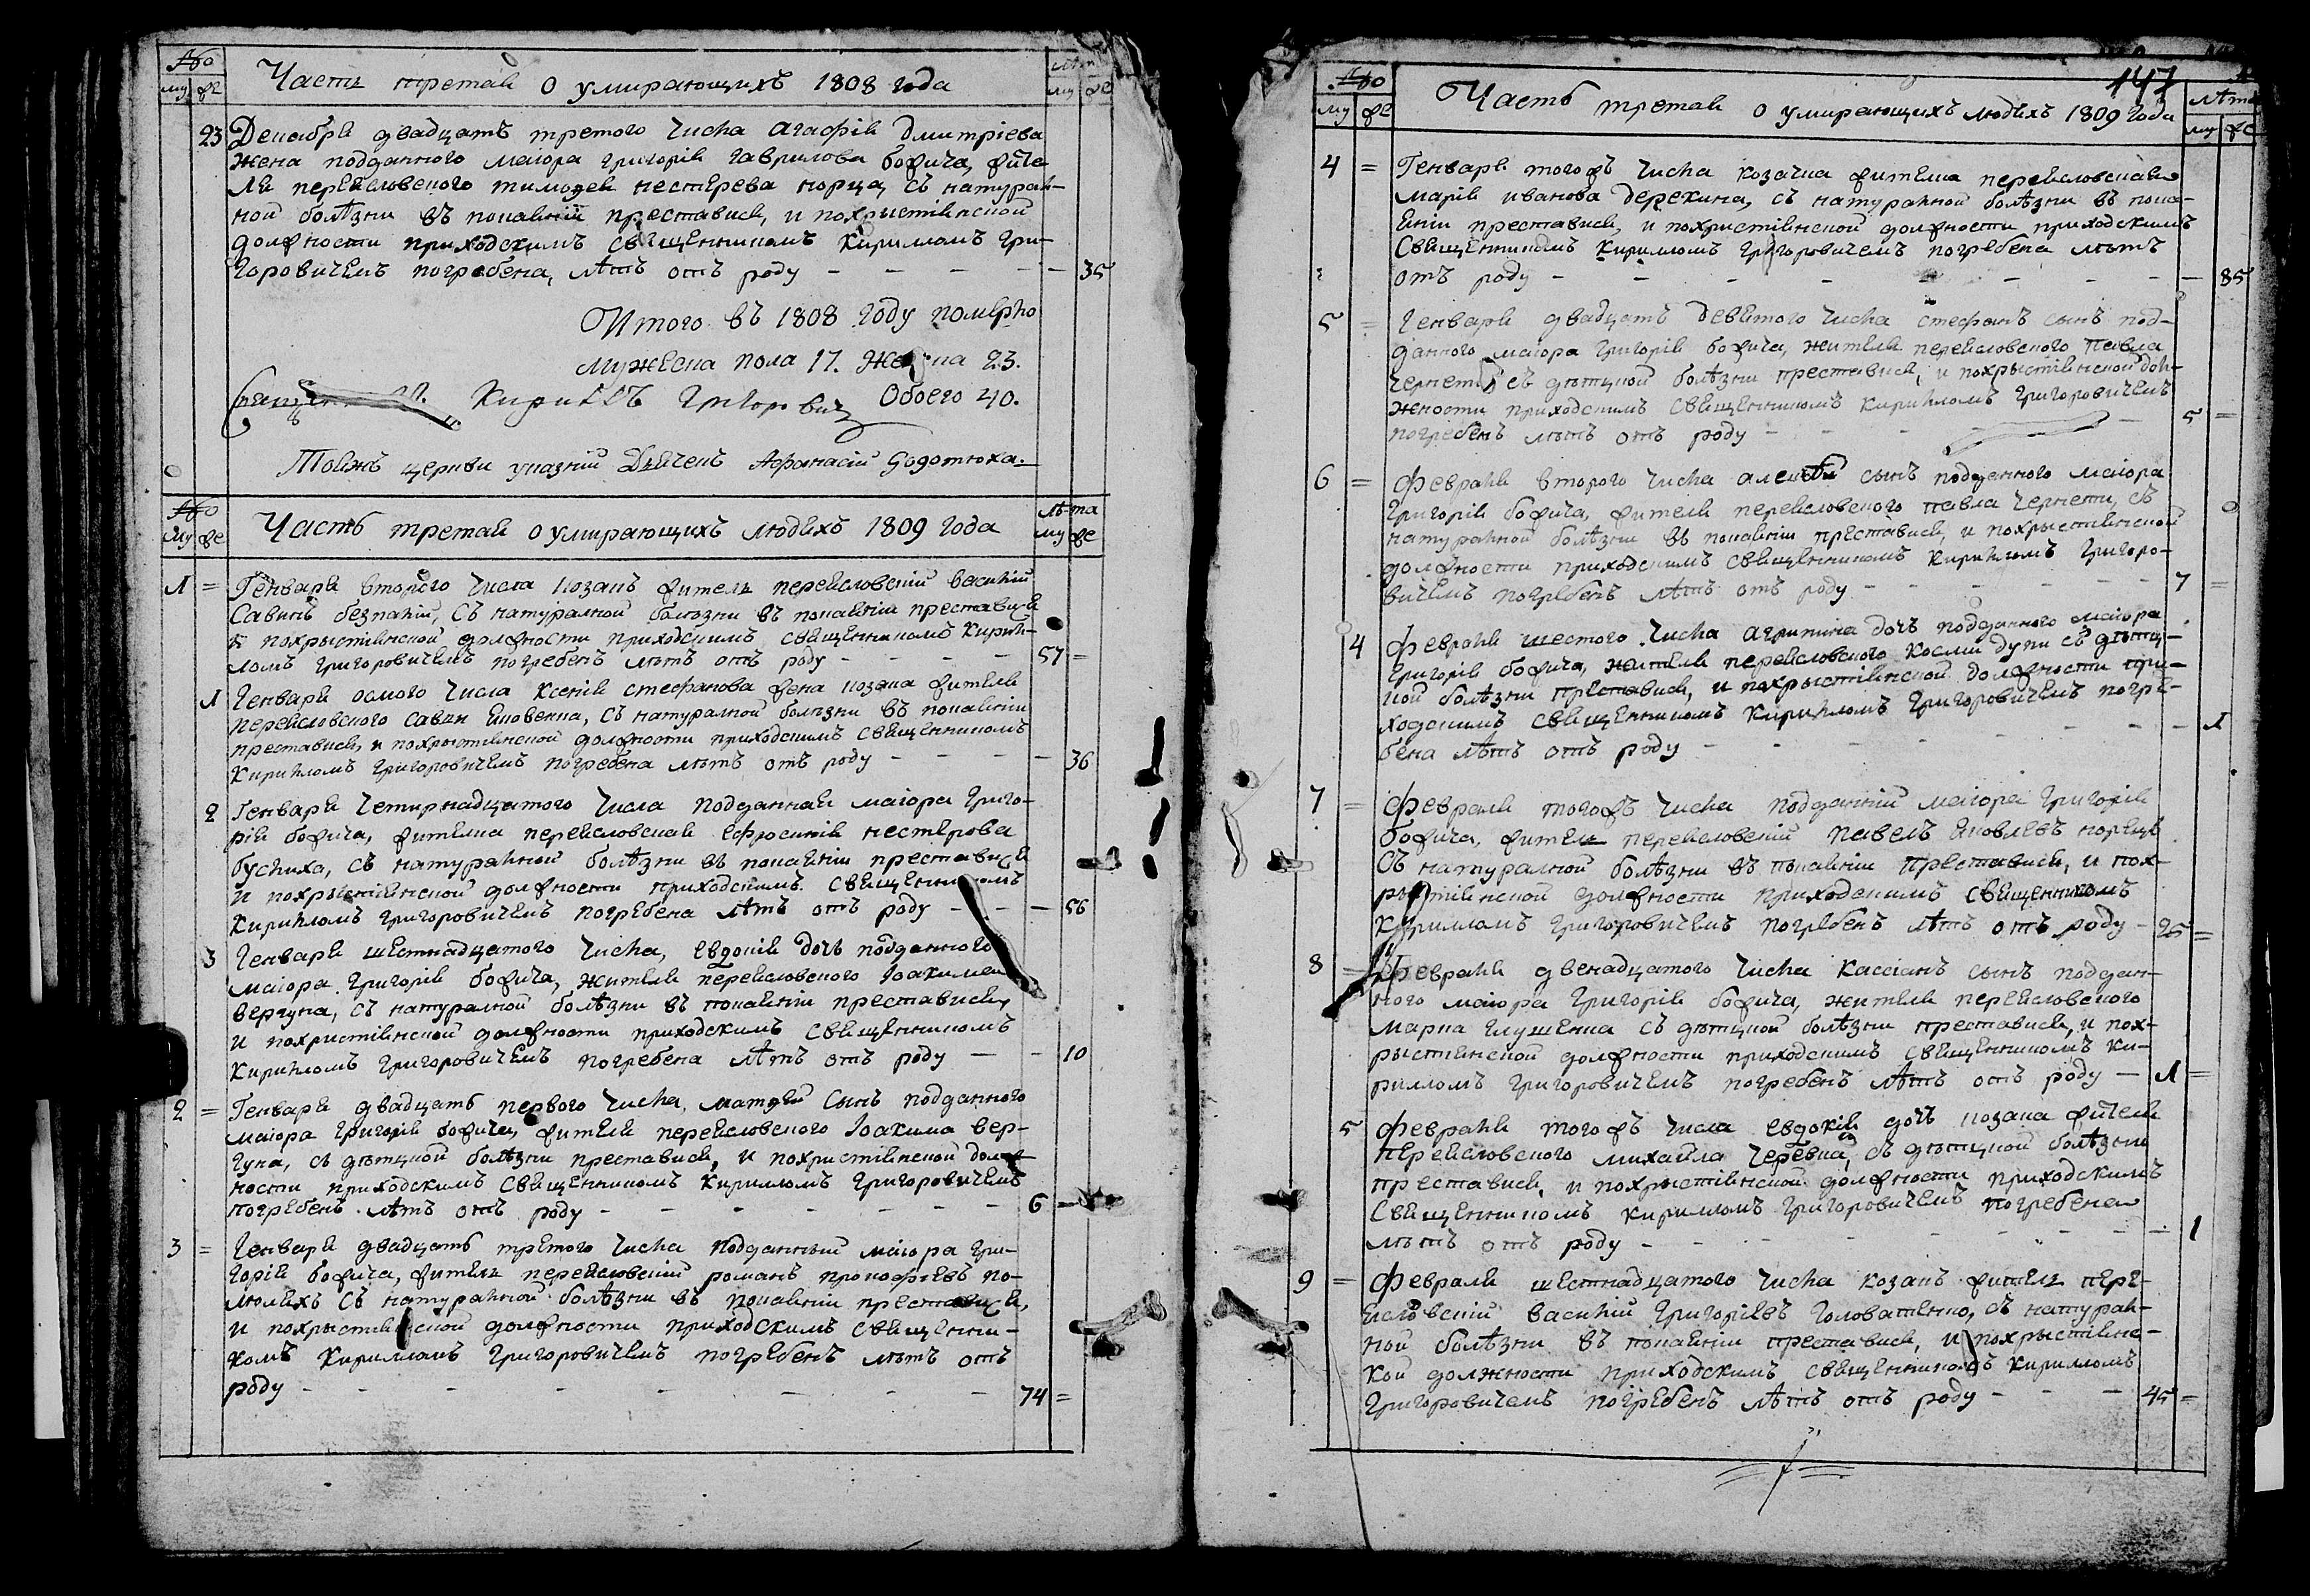 №
му
фе
Часть третая о умирающихъ 1808 года
му
фе
23 Декабря двадцать третого числа Агафія Дмитріева
жена подданного маіора Григорія Гаврилова Божича, жите
ля переясловского Тимофея Нестерева Корца, съ натурал-
ной болѣзни въ покаяніи преставися, и похристіянской
должности приходскимъ священникомъ Кирилломъ Гри-
горовичемъ погребена, лѣтъ отъ роду - - - - - 35
Итого въ 1808 году померло
мужеска пола 17. Женска 23.
Кириллъ Григорович Обоего 40.
Тоя жъ церкви указній Дьячекъ Афанасій
№
му
фе
Часть третая о умирающихъ людяхъ 1809 года
лѣта
му
фе
1 = Генваря второго числа козакъ житель переясловскій Василій
Савинъ Безпалій, съ натуралной болѣзни въ покаяніи преставися
и похрыстіянской должности приходскимъ священникомъ Кирил-
ломъ Григоровичемъ погребенъ лѣтъ отъ роду - - - - 57 =
1 Генваря осмого числа Ксенія Стефанова жена козака жителя
переясловского Савы Яковенка, съ натуралной болѣзни въ покаяніи
преставися, и похрыстіянской должности приходскимъ священникомъ
Кирилломъ Григоровичемъ погребена лѣтъ отъ роду - - - - 36
2 Генваря четирнадцатого числа подданная маіора Григо-
рія Божича, жителка переясловская Ефросинія Нестерова
Бусиха, съ натуралной болѣзни въ покаяніи преставися
и похрыстіянской должности приходскимъ священникомъ
Кирилломъ Григоровичемъ погребена лѣтъ отъ роду - - - 56
3 Генваря шестнадцатого числа, Евдокія дочь подданного
маіора Григорія Божича, жителя переясловского Іоакима
Вергуна, съ натуралной болѣзни въ покаяніи преставися,
и похристіянской должности приходскимъ священникомъ
Кирилломъ Григоровичемъ погребена лѣтъ отъ роду - - 10
2 = Генваря двадцать первого числа, Матфей сынъ подданного
маіора Григорія Божича, жителя переясловского Іоакима Вер-
гуна, съ дѣтцкой болѣзни преставися, и похристіянской долж-
ности приходскимъ священникомъ Кирилломъ Григоровичемъ
погребенъ лѣтъ отъ роду - - - - - - - 6 =
3 = Генваря двадцать третого числа подданный маіора Гри-
горія Божича, житель переясловскій Романъ Прокофіевъ
съ натуралной болѣзни въ покаяніи преставися,
и похрыстіянской должности приходскимъ священни-
комъ Кирилломъ Григоровичемъ погребенъ лѣтъ отъ
роду - - - - - - - 74 =
147
№
му
фе
Часть третая о умирающихъ людяхъ 1809 года
лѣта
му
фе
4 = Генваря тогожъ числа козачка жителка переясловская
Марія Иванова Дерекина, съ натуралной болѣзни въ пока-
яніи преставися, и похристіянской должности приходскимъ
священникомъ Кирилломъ Григоровичемъ погребена лѣтъ
отъ роду - - - - - - - - 85
5 = Генваря двадцать девятого числа Стефанъ сынъ под-
данного маіора Григорія Божича, жителя переясловского Павла
съ дѣтцкой болѣзни преставися, и похрыстіянской дол-
жности приходскимъ священникомъ Кирилломъ Григоровичемъ
погребенъ лѣтъ отъ роду - - - - - 5 =
6 = Февраля второго числа Алексѣй сынъ подданного маіора
Григорія Божича, жителя переясловского Павла Чернети, съ
натуралной болѣзни въ покаяніи преставися, и похрыстіянской
должности приходскимъ священникомъ Кирилломъ Григоро-
вичемъ погребенъ лѣтъ отъ роду - - - - - - 7 =
4 Февраля шестого числа Агрипина дочь подданного маіора
Григорія Божича, жителя переясловского Космы Дупи съ дѣтц-
кой болѣзни преставися, и похрыстіянской должности при-
ходскимъ священникомъ Кирилломъ Григоровичемъ погре-
бена лѣтъ отъ роду - - - - - - - 1
7 = Февраля тогожъ числа подданній маіора Григорія
Божича, житель переясловскій Павелъ Яковлевъ Корецъ
съ натуралной болѣзни въ покаяніи преставися, и пох-
рыстіянской должности приходскимъ священникомъ
Кирилломъ Григоровичемъ погребенъ лѣтъ отъ роду - 25 =
8 = Февраля двенадцатого числа Кассіанъ сынъ поддан-
ного маіора Григорія Божича, жителя переясловского
Марка Глушенка съ дѣтцкой болѣзни преставися, и пох-
рыстіянской должности приходскимъ священникомъ Ки-
рилломъ Григоровичемъ погребенъ лѣтъ отъ роду - 1 =
5 Февраля тогожъ числа Евдокія дочъ козака жителя
переясловского Михайла съ дѣтцкой болѣзни
преставися, и похрыстіянской должности приходскимъ
священникомъ Кирилломъ Григоровичемъ погребена
лѣтъ отъ роду - - - - - - - - 1
9 = Февраля шестнадцатого числа козакъ житель пере-
ясловскій Василій Григоріевъ Головатенко, съ натурал-
ной болѣзни въ покаяніи преставися, и похрыстіянс-
кой должности приходскимъ священникомъ Кирилломъ
Григоровичемъ погребенъ лѣтъ отъ роду - - - 45 =